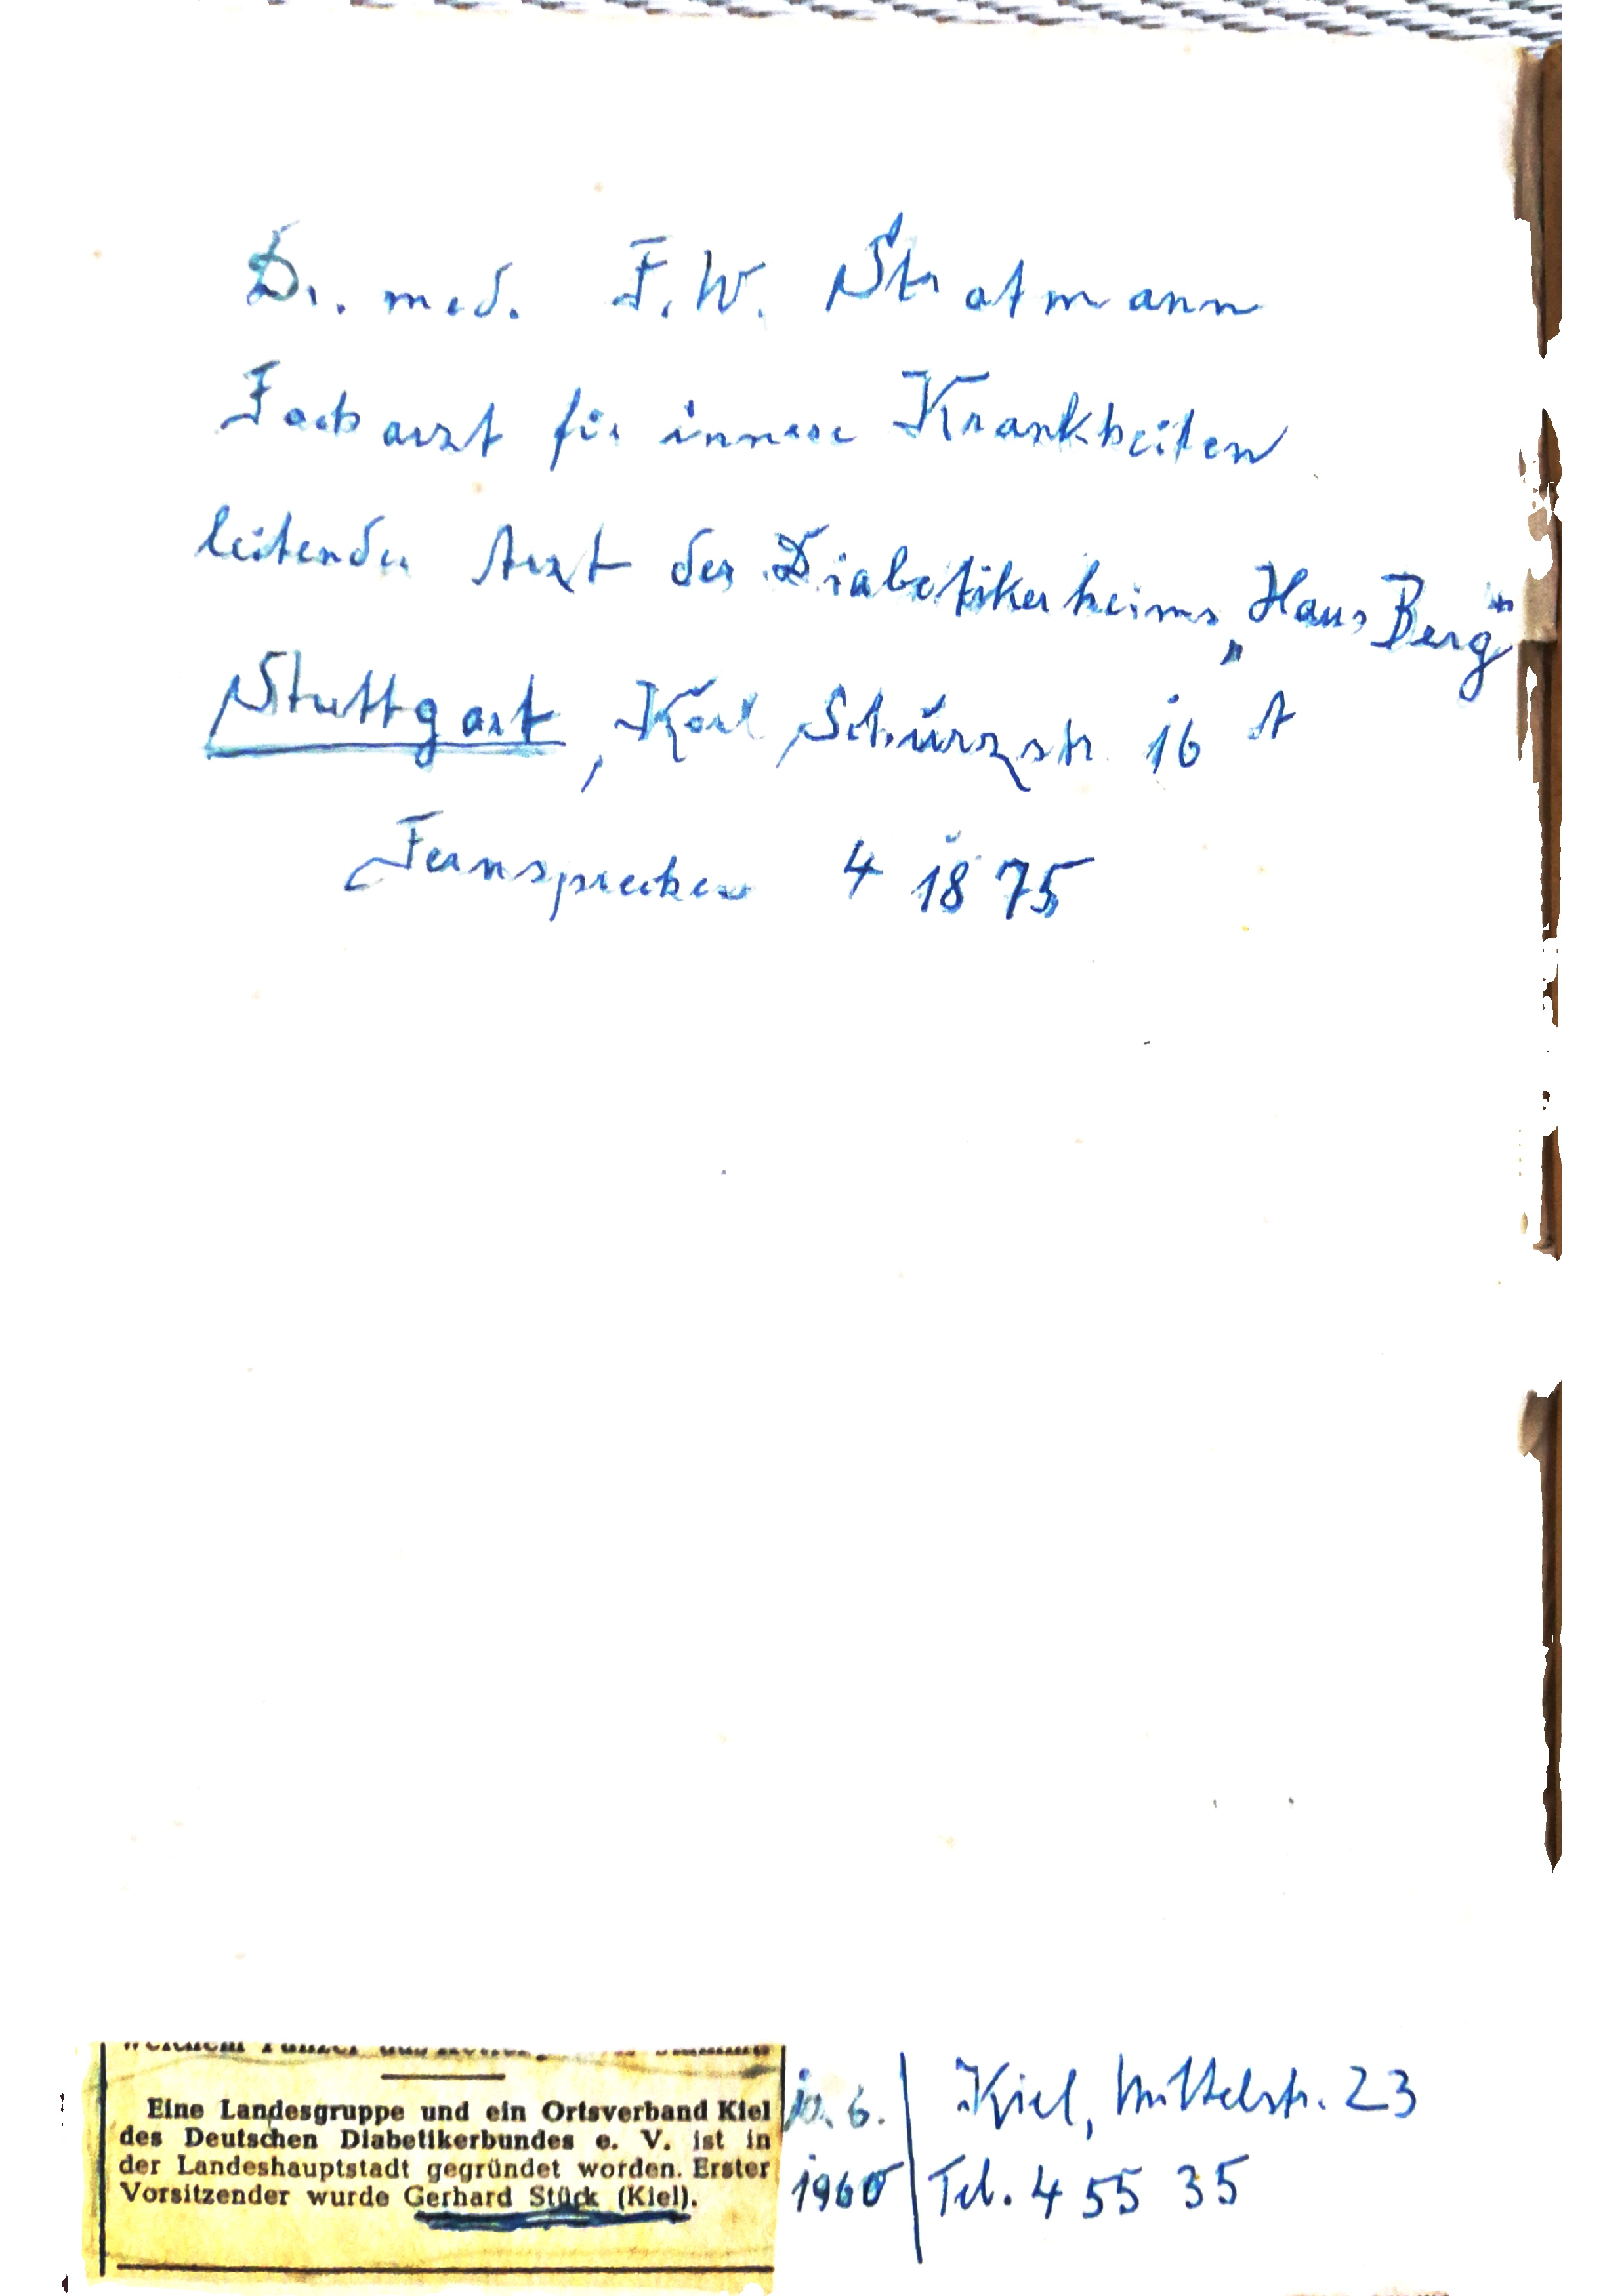 Dr. med. F. W. Stratmann
Facharzt für innere Krankheiten
leitender Arzt des Diabetikerheims „Haus Berg"
Stuttgart, Karl Schurzstr. 16 A
Fernsprecher 4 18 75
Eine Landesgruppe und ein Ortsverband Kiel
des Deutschen Diabetikerbundes e. V. ist in
der Landeshauptstadt gegründet worden. Erster
Vorsitzender wurde Gerhard Stück (Kiel).
10. 6.
1960
Kiel, Mittelstr. 23
Tel. 4 55 35